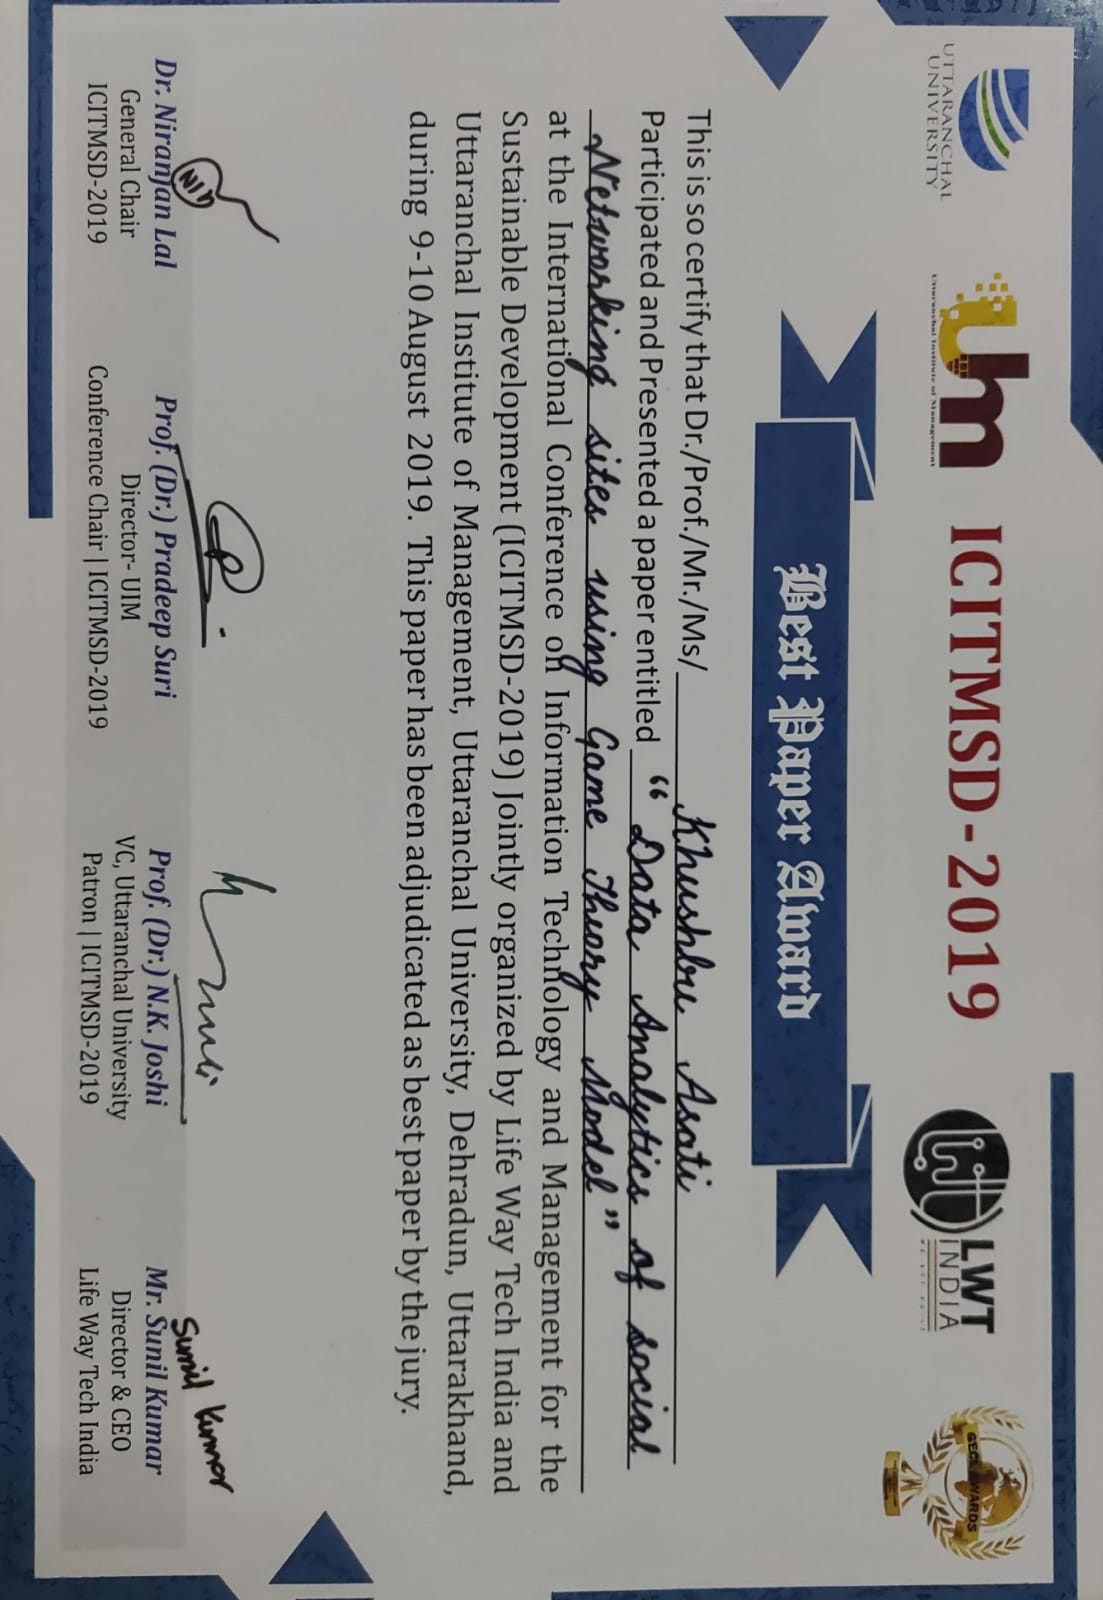 UTTARANCHAL
UNIVERSITY
Uttaranchal Institute of Management
ICITMSD-2019
LWT
INDIA
GECL AWARDS
Best Paper Award
This is so certify that Dr./Prof./Mr./Ms/ Khushbu Asati
Participated and Presented a paper entitled “ Data Analytics of social
Networking sites using Game Theory Model ”
at the International Conference on Information Technology and Management for the
Sustainable Development (ICITMSD-2019) Jointly organized by Life Way Tech India and
Uttaranchal Institute of Management, Uttaranchal University, Dehradun, Uttarakhand,
during 9-10 August 2019. This paper has been adjudicated as best paper by the jury.
Sunil Kumar
Dr. Niranjan Lal
General Chair
ICITMSD-2019
Prof. (Dr.) Pradeep Suri
Director- UIM
Conference Chair | ICITMSD-2019
Prof. (Dr.) N.K. Joshi
VC, Uttaranchal University
Patron | ICITMSD-2019
Mr. Sunil Kumar
Director & CEO
Life Way Tech India